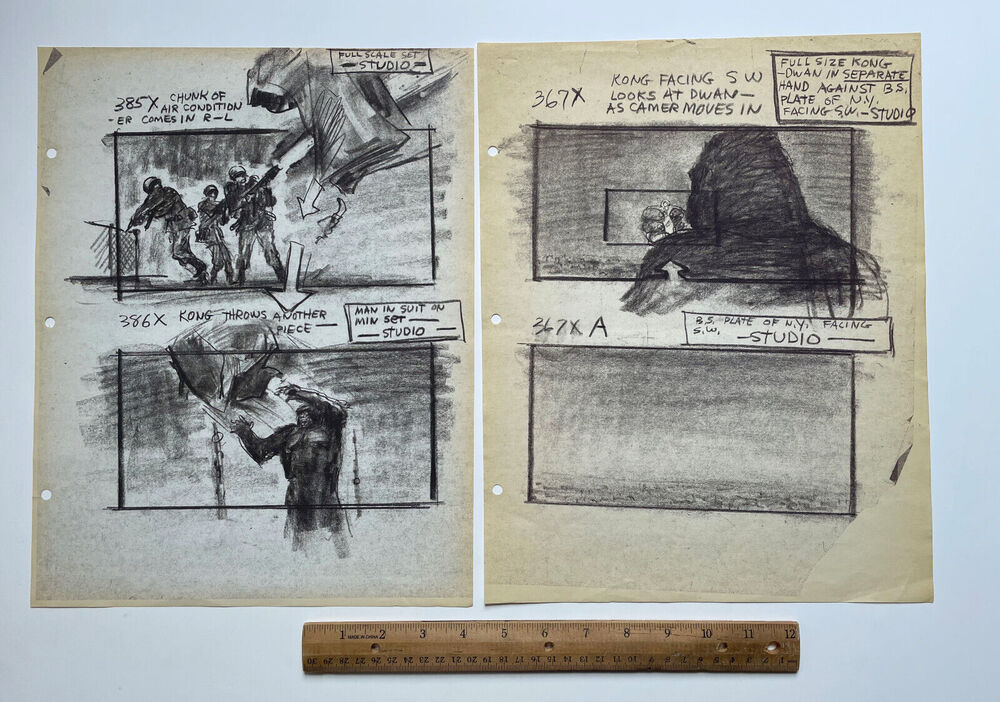 FULL SCALE SET
— STUDIO —
385X CHUNK OF
AIR CONDITION
-ER COMES IN R-L
386X KONG THROWS ANOTHER
PIECE —
MAN IN SUIT ON
MIN SET —
— STUDIO —
367X
KONG FACING S W
LOOKS AT DWAN —
AS CAMER MOVES IN
FULL SIZE KONG
-DWAN IN SEPARATE
HAND AGAINST B.S.
PLATE OF N.Y.
FACING S.W. - STUDIO
367X A
B.S. PLATE OF N.Y. FACING
S.W.
— STUDIO —
1 MADE IN CHINA 2 3 4 5 6 7 8 9 10 11 12
30 29 28 27 26 25 24 23 22 21 20 19 18 17 16 15 14 13 12 11 10 9 8 7 6 5 4 3 2 1